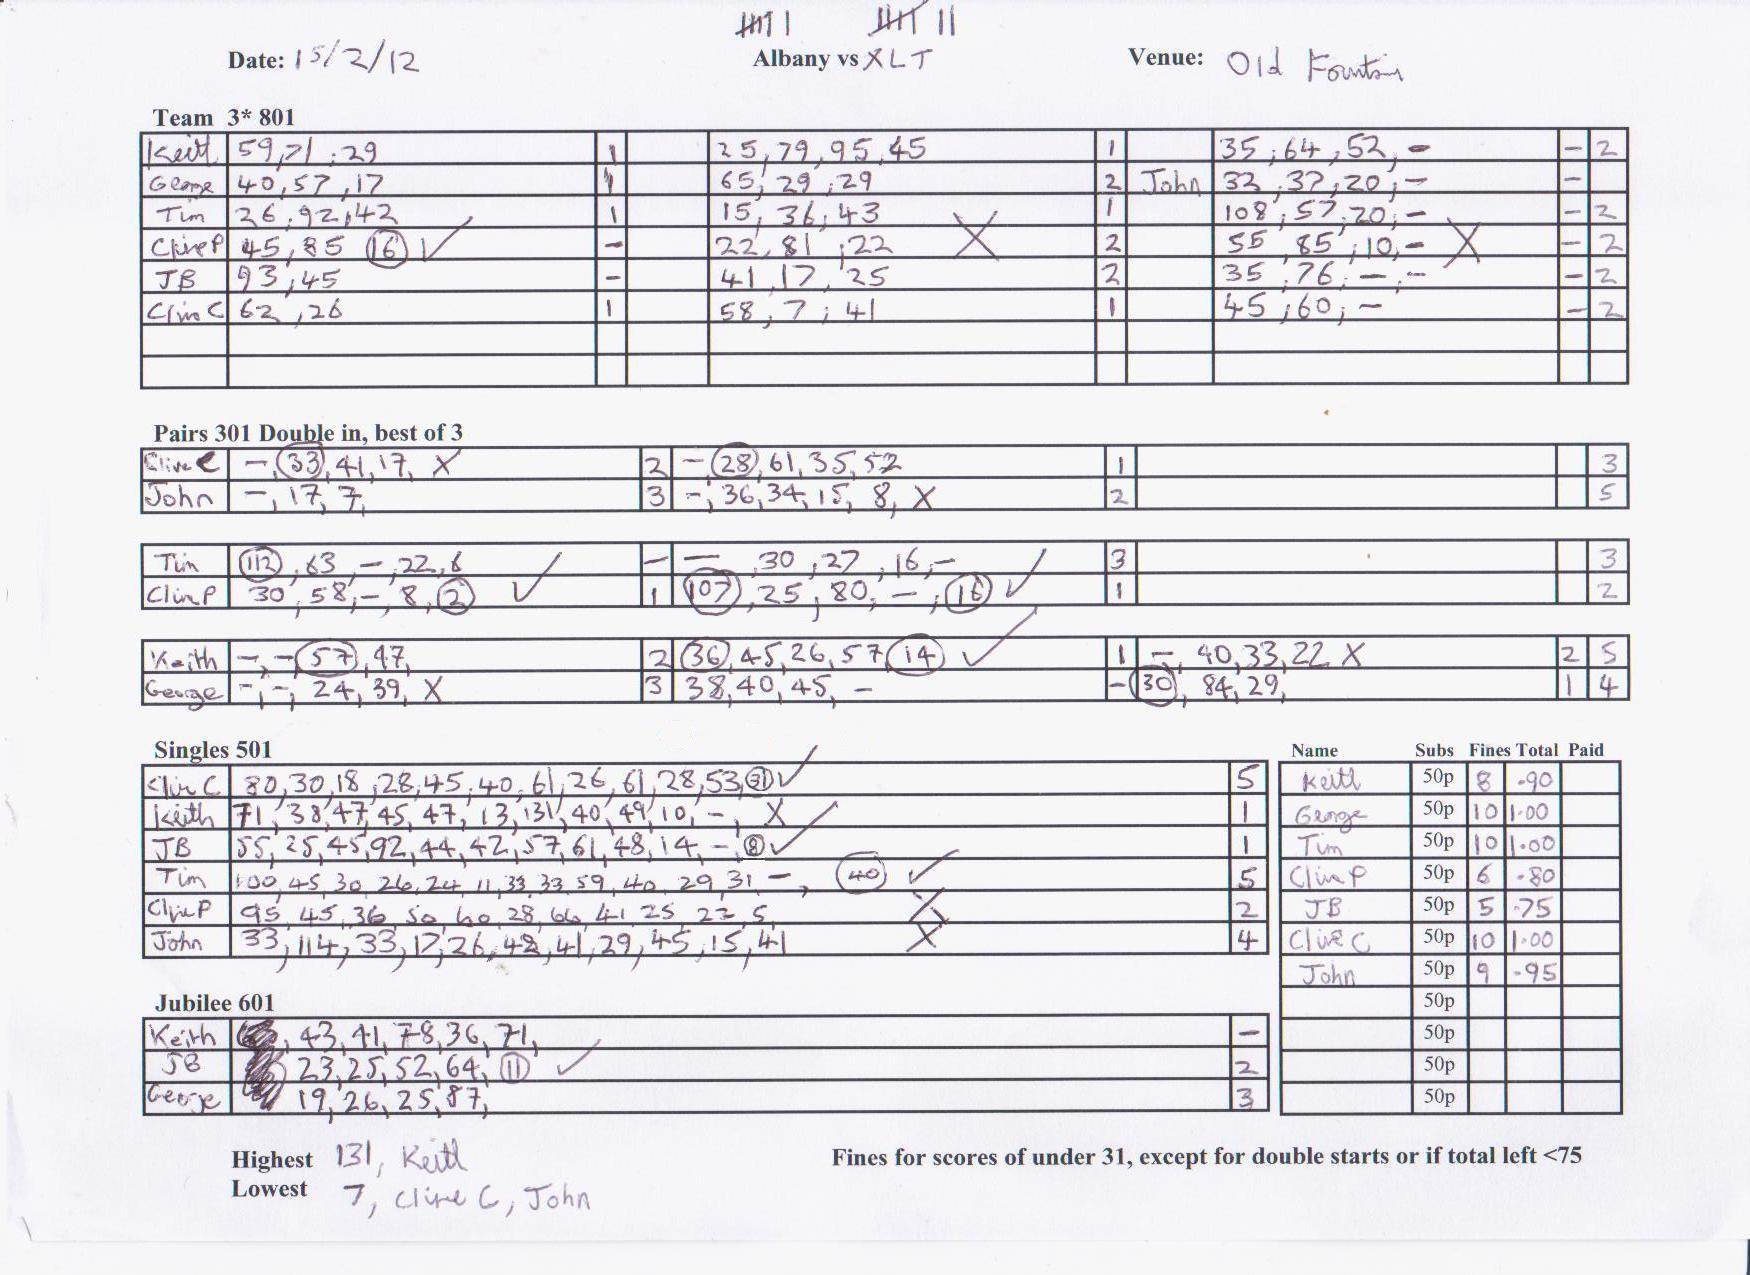 Date: 15/2/12 Albany vs XLT Venue: Old Fountain
Team 3* 801
Keith 59, 71, 29 1 25, 79, 95, 45 1 35, 64, 52, - - 2
George 40, 57, 17 1 65, 29, 29 2 John 32, 37, 20, - -
Tim 26, 92, 42 1 15, 36, 43 1 108, 57, 20, - - 2
Clive P 45, 85 16 ✓ - 22, 81, 22 X 2 55, 85, 10, - X - 2
JB 93, 45 - 41, 17, 25 2 35, 76, -, - - 2
Clive C 62, 26 1 58, 7, 41 1 45, 60, - - 2
Pairs 301 Double in, best of 3
Clive C -, 33, 41, 17, X 2 - 28, 61, 35, 52 1 3
John -, 17, 7, 3 -, 36, 34, 15, 8, X 2 5
Tim 112, 63, -, 22, 6 - -, 30, 27, 16, - 3 3
Clive P 30, 58, -, 8, 2 ✓ 1 107, 25, 80, -, 16 ✓ 1 2
Keith -, - 57, 47, 2 36, 45, 26, 57 14 ✓ 1 -, 40, 33, 22 X 2 5
George -, -, 24, 39, X 3 38, 40, 45, - - 30, 84, 29, 1 4
Singles 501
Clive C 80, 30, 18, 28, 45, 40, 61, 26, 61, 28, 53, 31 ✓ 5
Keith 71, 38, 47, 45, 47, 13, 131, 40, 49, 10, -, X 1
JB 55, 25, 45, 92, 44, 42, 57, 61, 48, 14, -, 8 ✓ 1
Tim 100, 45, 30, 26, 24, 11, 33, 33, 59, 40, 29, 31 -, 40 ✓ 5
Clive P 95, 45, 36, 50, 60, 28, 66, 41, 25, 22, 5, X 2
John 33, 114, 33, 17, 26, 42, 41, 29, 45, 15, 41 X 4
Name Subs Fines Total Paid
Keith 50p 8 .90
George 50p 10 1.00
Tim 50p 10 1.00
Clive P 50p 6 .80
JB 50p 5 .75
Clive C 50p 10 1.00
John 50p 9 .95
50p
50p
50p
50p
Jubilee 601
Keith , 43, 41, 78, 36, 71, -
JB 23, 25, 52, 64, 11 ✓ 2
George 19, 26, 25, 87, 3
Highest 131, Keith
Lowest 7, Clive C, John
Fines for scores of under 31, except for double starts or if total left <75